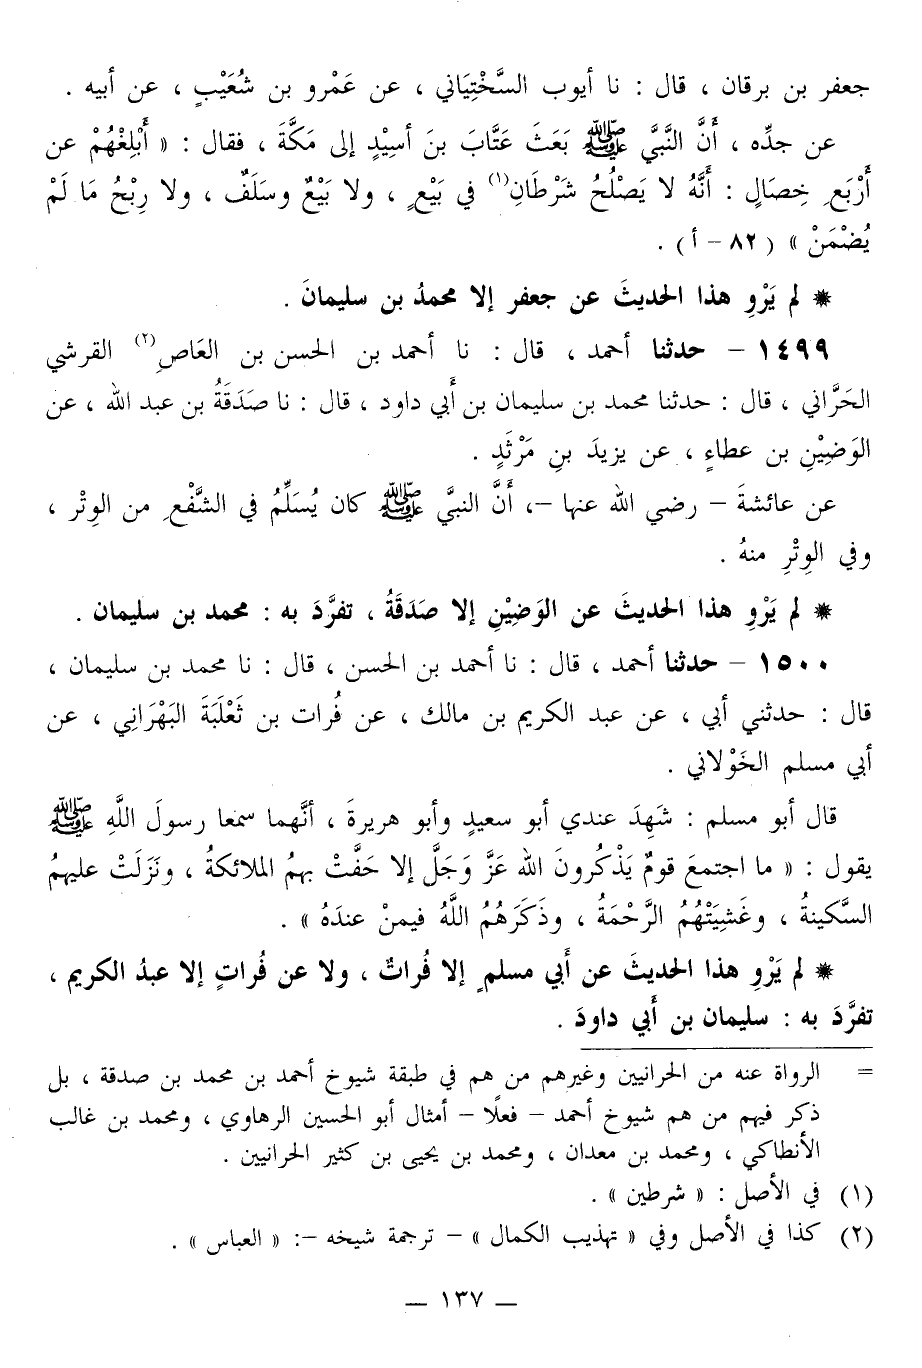 جعفر بن برقان ، قال : نا أيوب السَّخْتِيَاني ، عن عَمْرو بن شُعَيْبٍ ، عن أبيه .
عن جدِّه ، أَنَّ النَّبيَّ ﷺ بَعَثَ عَتَّابَ بنَ أسِيْدٍ إلى مَكَّةَ ، فقال : « أَبْلِغْهُمْ عن
أَرْبَعِ خِصَالٍ : أَنَّهُ لا يَصْلُحُ شَرْطَانِ(١) في بَيْعٍ ، ولا بَيْعٌ وسَلَفٌ ، ولا رِبْحُ مَا لَمْ
يُضْمَنْ » ( ٨٢ – أ ) .
* لم يَرْوِ هذا الحديثَ عن جعفر إلا محمدُ بن سليمانَ .
١٤٩٩ – حدثنا أحمد ، قال : نا أحمد بن الحسن بن العَاصِ(٢) القرشي
الحَرَّاني ، قال : حدثنا محمد بن سليمان بن أَبي داود ، قال : نا صَدَقَةُ بن عبد الله ، عن
الوَضِيْنِ بن عطاءٍ ، عن يزيدَ بنِ مَرْثَدٍ .
عن عائشةَ – رضي الله عنها –، أَنَّ النبيَّ ﷺ كان يُسَلِّمُ في الشَّفْعِ من الوِتْر ،
وفي الوِتْرِ منهُ .
* لم يَرْوِ هذا الحديثَ عن الوَضِيْنِ إلا صَدَقَةُ ، تفرَّدَ به : محمد بن سليمان .
١٥٠٠ – حدثنا أحمد ، قال : نا أحمد بن الحسن ، قال : نا محمد بن سليمان ،
قال : حدثني أبي ، عن عبد الكريم بن مالك ، عن فُرات بن ثَعْلَبَةَ البَهْرَانِي ، عن
أبي مسلم الخَوْلاني .
قال أبو مسلم : شَهِدَ عندي أبو سعيدٍ وأبو هريرةَ ، أنَّهما سمعا رسولَ اللَّهِ ﷺ
يقول : « ما اجتمعَ قومٌ يَذْكُرونَ الله عَزَّ وَجَلَّ إلا حَفَّتْ بهمُ الملائكةُ ، ونَزَلَتْ عليهمُ
السَّكينةُ ، وغَشِيَتْهُمُ الرَّحْمَةُ ، وذَكَرَهُمُ اللَّهُ فيمنْ عندَهُ » .
* لم يَرْوِ هذا الحديثَ عن أَبي مسلمٍ إلا فُراتٌ ، ولا عن فُراتٍ إلا عبدُ الكريم ،
تفرَّدَ به : سليمان بن أَبي داودَ .
= الرواة عنه من الحرانيين وغيرهم من هم في طبقة شيوخ أحمد بن محمد بن صدقة ، بل
ذكر فيهم من هم شيوخ أحمد – فعلًا – أمثال أبو الحسين الرهاوي ، ومحمد بن غالب
الأنطاكي ، ومحمد بن معدان ، ومحمد بن يحيى بن كثير الحرانيين .
(١) في الأصل : « شرطين » .
(٢) كذا في الأصل وفي « تهذيب الكمال » – ترجمة شيخه –: « العباس » .
— ١٣٧ —